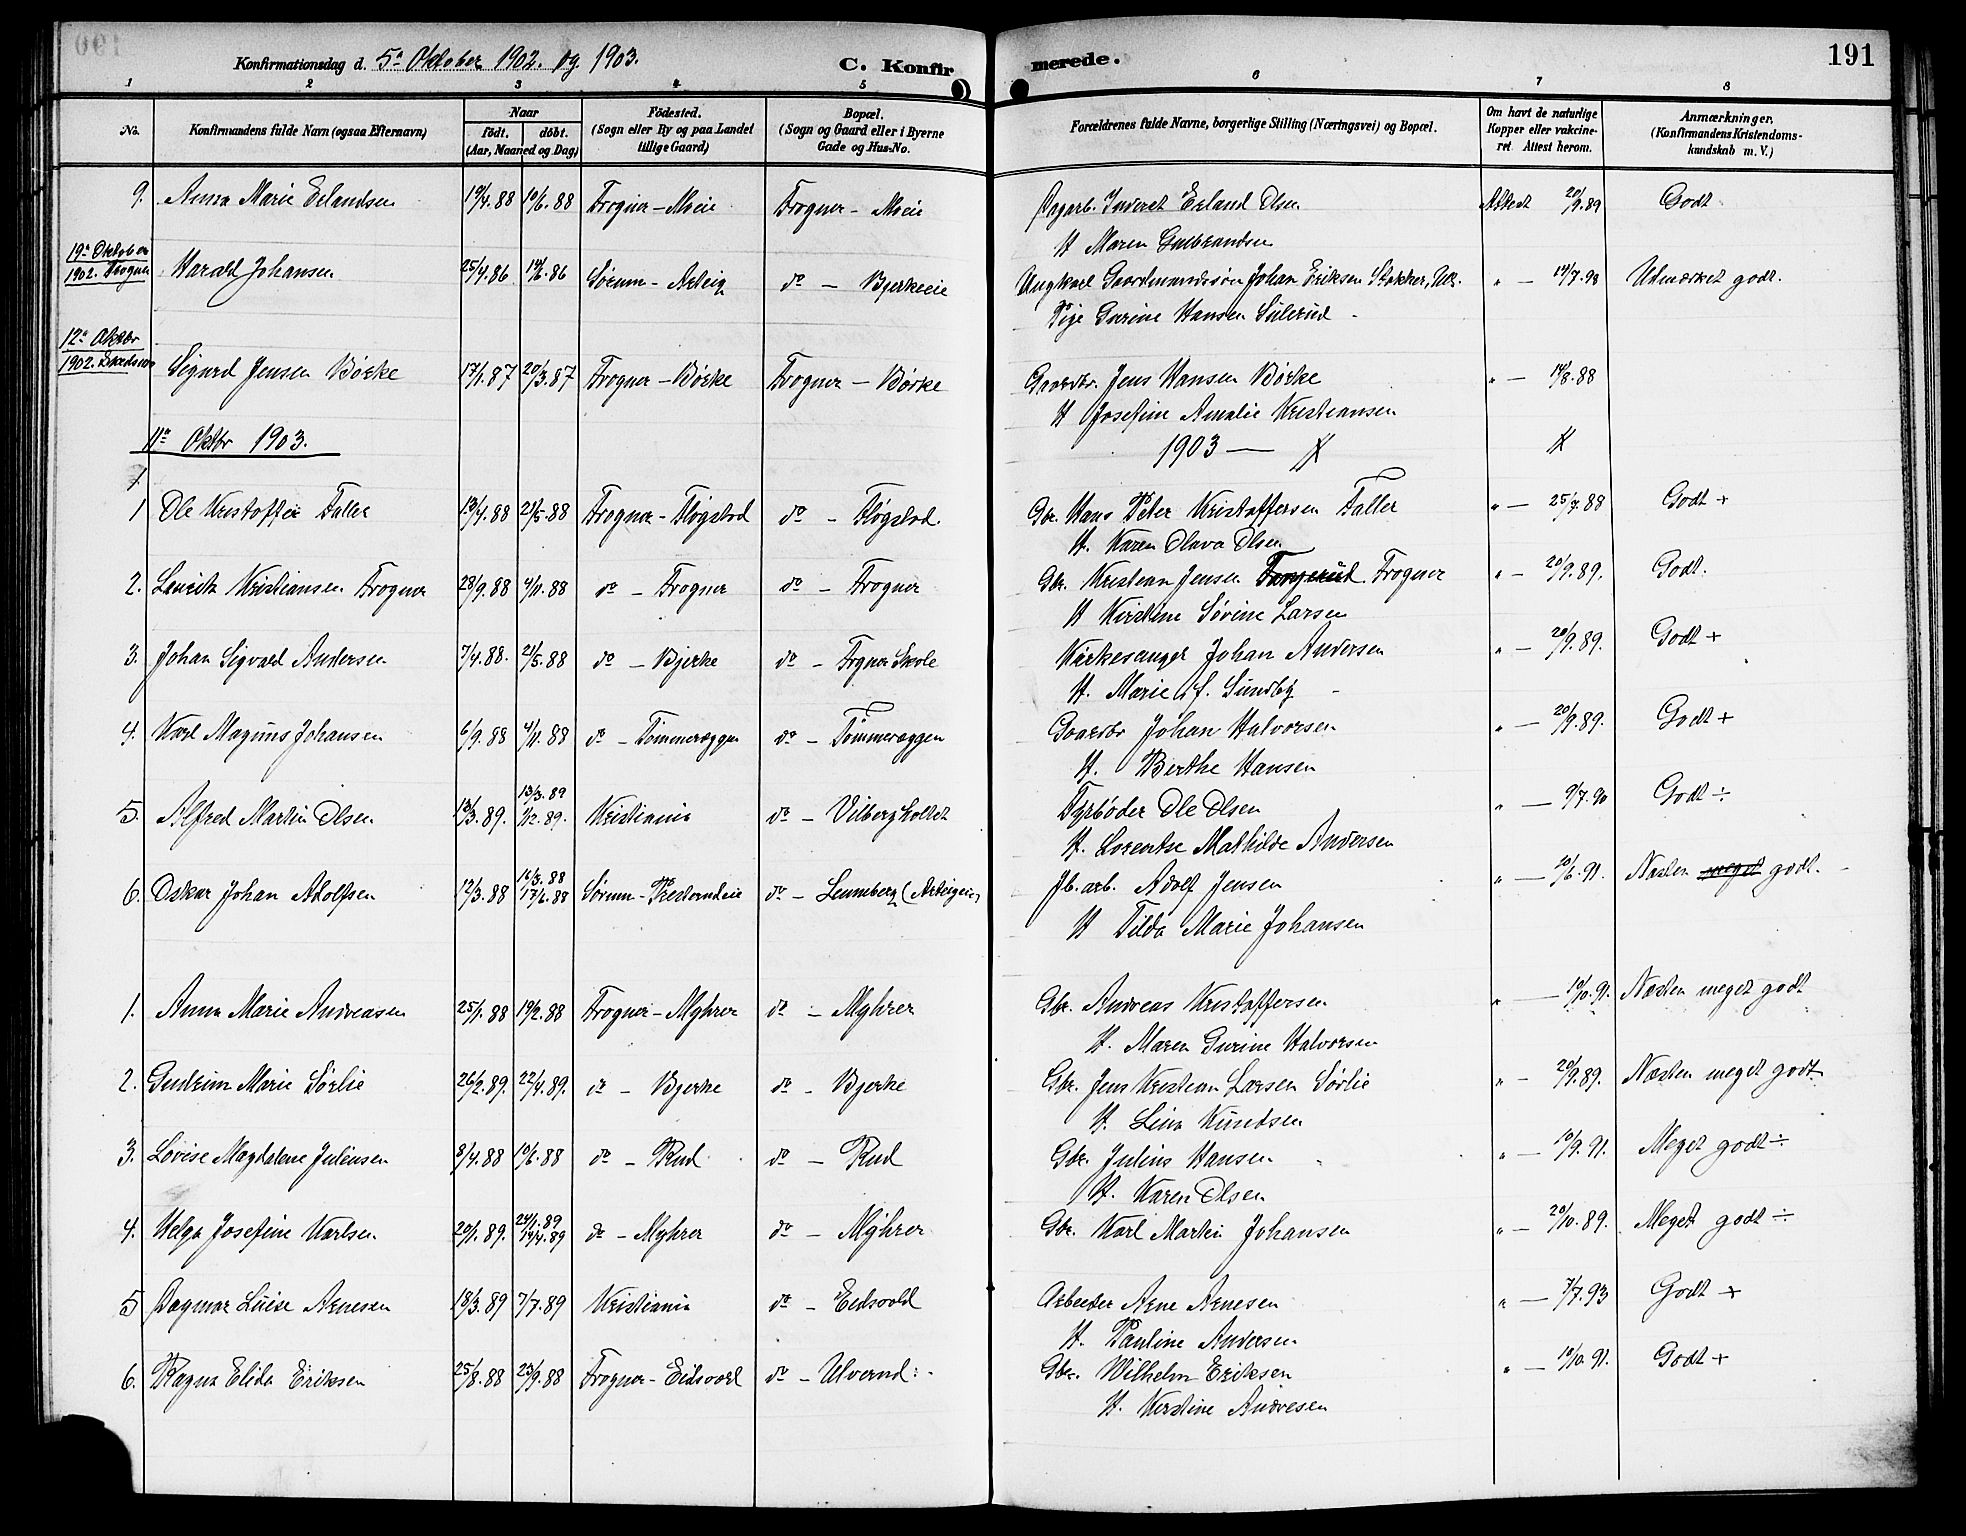 191
Konfirmationsdag d. 5te Oktober 1902. og 1903. C. Konfirmerede.
1 2 3 4 5 6 7 8
No. Konfirmandens fulde Navn (ogsaa Efternavn) Naar födt. döbt. (Aar, Maaned og Dag) Födested. (Sogn eller By og paa Landet tillige Gaard) Bopæl. (Sogn og Gaard eller i Byerne Gade og Hus-No. Forældrenes fulde Navne, borgerlige Stilling (Næringsvei) og Bopæl. Om havt de naturlige Kopper eller vakcineret. Attest herom. Anmærkninger, (Konfirmandens Kristendomskundskab m. V.)
9. Anna Marie Erlandsen 19/4.88 10/6.88 Frogner - Moeie Frogner - Moeie Dagarb. Inderst Erland Olsen Attest 20/9.89 Godt
H Maren Gulbrandsen
19de Oktober 1902. Frogner Harald Johansen 25/4.86 14/6.86 Sørum - Asteig do - Bjerkeeie Ungkarl Gaardmandssøn Johan Eriksen Stokker, Ulls. " - 14/7.98 Udmærket godt.
Pige Gurine Hansen Sulerud
12te Oktbr 1902. Skedsmo Sigurd Jensen Børke 17/1.87 20/3.87 Frogner - Børke Frogner - Børke Gaardbr. Jens Hansen Børke " - 14/8.88
H Josefine Amalie Kristiansen
11te Oktbr 1903. 1903 -
1 Ole Kristoffer Faller 13/4.88 21/5.88 Frogner - Fløgstad do - Fløgstad. Gbr. Hans Peter Kristoffersen Faller " - 25/7.88 Godt +
H. Karen Olava Olsen
2. Lauritz Kristiansen Frogner 28/9.88 4/11.88 do - Frogner do - Frogner Gbr. Kristian Jensen Frogner " - 20/9.89. Godt.
H Kirstine Sørine Larsen
3. Johan Sigvald Andersen 7/4.88. 21/5.88 do - Bjerke do - Frogner Skole Kirkesanger Johan Andersen " - 20/9.89. Godt +
H. Marie f. Sundby
4. Karl Magnus Johansen 6/9.88 4/11.88 do - Tømmeraggen do - Tømmeraggen Gaardbr Johan Halvorsen " - 20/9.89. Godt +
H. Berthe Hansen
5. Alfred Martin Olsen 13/3.89. 13/3.89 1/12.89. Kristiania do - Vilbergholtet Fyrbøder Ole Olsen " - 9/7.90 Godt ÷
H. Lorentse Mathilde Andersen
6. Oskar Johan Adolfsen 12/3.88 16/3.88 17/6.88 Sørum - Prestemdeie do - Lunnberg (Asteigeie) Jb.arb. Adolf Jensen " - 20/6.91. Næsten meget godt.
H Tilda Marie Johansen
1. Anna Marie Andreasen 25/1.88 19/2.88 Frogner - Myhrer do - Myhrer Gbr. Andreas Kristoffersen " - 10/10.91. Næsten meget godt
H. Maren Gurine Halvorsen
2. Gudrun Marie Sørlie 26/2.89. 22/4.89. do - Bjerke do - Bjerke Gbr. Jens Kristian Larsen Sørlie " - 20/9.89. Næsten meget godt
H. Lina Knudsen
3. Lovise Magdalene Juliusen 8/4.88 10/6.88 do - Rud do - Rud Gbr. Julius Hansen " - 10/9.91. Meget godt ÷
H. Karen Olsen
4. Helga Josefine Karlsen 20/1.89. 24/1.89 14/4.89 do - Myhrer do - Myhrer Gbr. Karl Martin Johansen " - 20/10.89. Meget godt ÷
5 Dagmar Luise Arnesen 18/3.89 7/7.89 Kristiania do - Eidsvold Arbeider Arne Arnesen " - 7/7.93 Godt +
H. Pauline Andersen
6. Ragna Elida Eriksen 25/8.88 23/9.88 Frogner - Eidsvold do - Ulverud: Gbr. Wilhelm Eriksen " - 10/10.91. Godt +
H. Kirstine Andresen